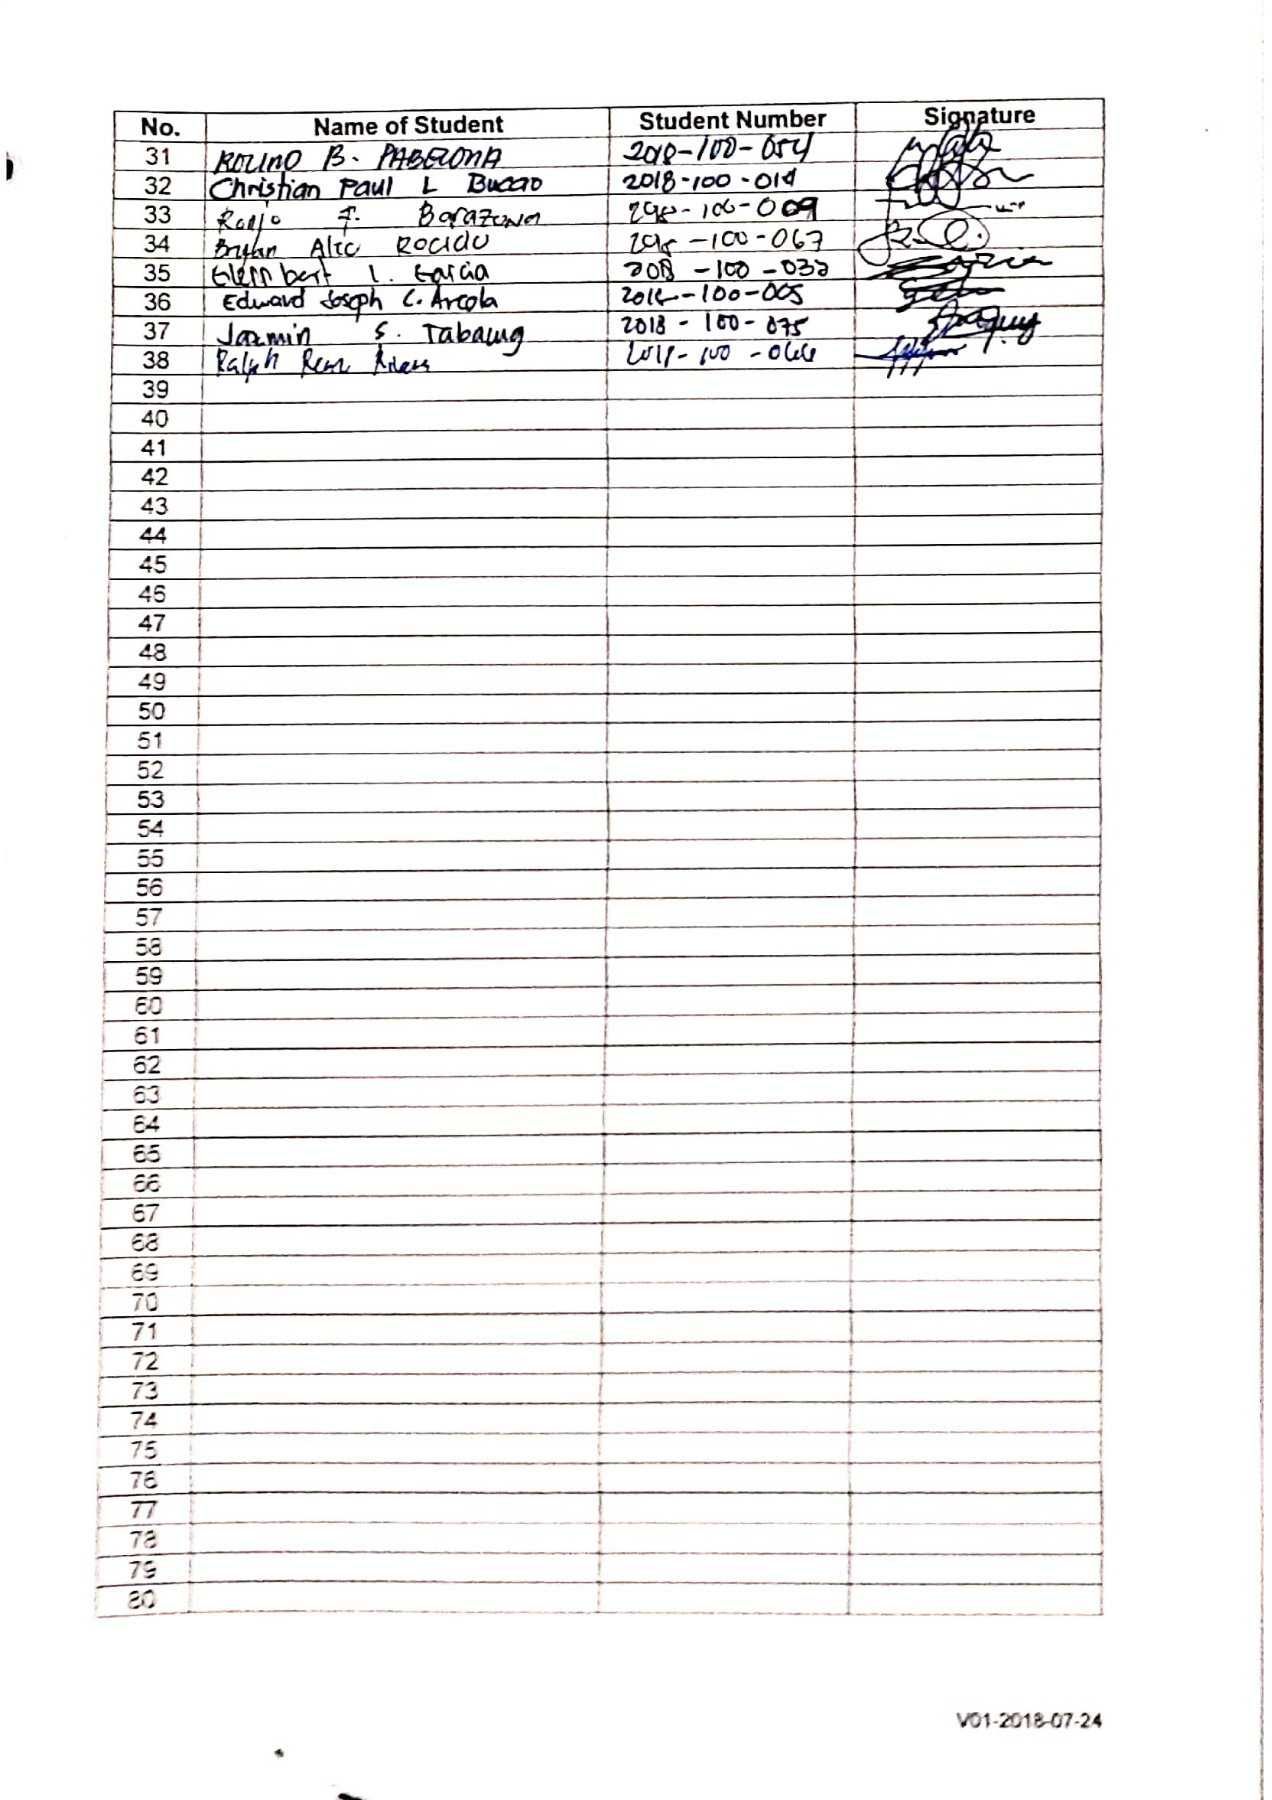 No. Name of Student Student Number Signature
31 ROLINO B. PABELONA 2018-100-054
32 Christian Paul L Buccao 2018-100-014
33 Ronjo F. Barazona 2018-100-009
34 Bryan Alic Rocido 2018-100-067
35 Glennbert L. Garcia 2018-100-032
36 Edward Joseph C. Arcola 2018-100-005
37 Jazmin S. Tabaung 2018-100-075
38 Ralph 2018-100-066
39
40
41
42
43
44
45
46
47
48
49
50
51
52
53
54
55
56
57
58
59
60
61
62
63
64
65
66
67
68
69
70
71
72
73
74
75
76
77
78
79
80
V01-2018-07-24